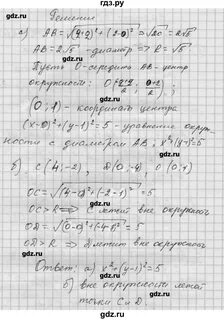 Решение
а) AB = √(2+2)² + (2-0)² = √20 = 2√5
AB = 2√5 - диаметр ⇒ R = √5
Пусть O - середина AB - центр
окружности: O(
(0; 1) - координаты центра
(x-0)² + (y-1)² = 5 - уравнение окруж
ности с диаметром AB; x² + (y-1)² = 5
б) C(4; -2), D(0; 4), O(0; 1)
OC = √(4-0)² + (-2-1)² = 5
OC > R ⇒ C лежит вне окружности
OD = √(0-0)² + (4-1)² = 3
OD > R ⇒ D лежит вне окружности
Ответ: а) x² + (y-1)² = 5
б) вне окружности лежат
точки C и D.
gdz.ru